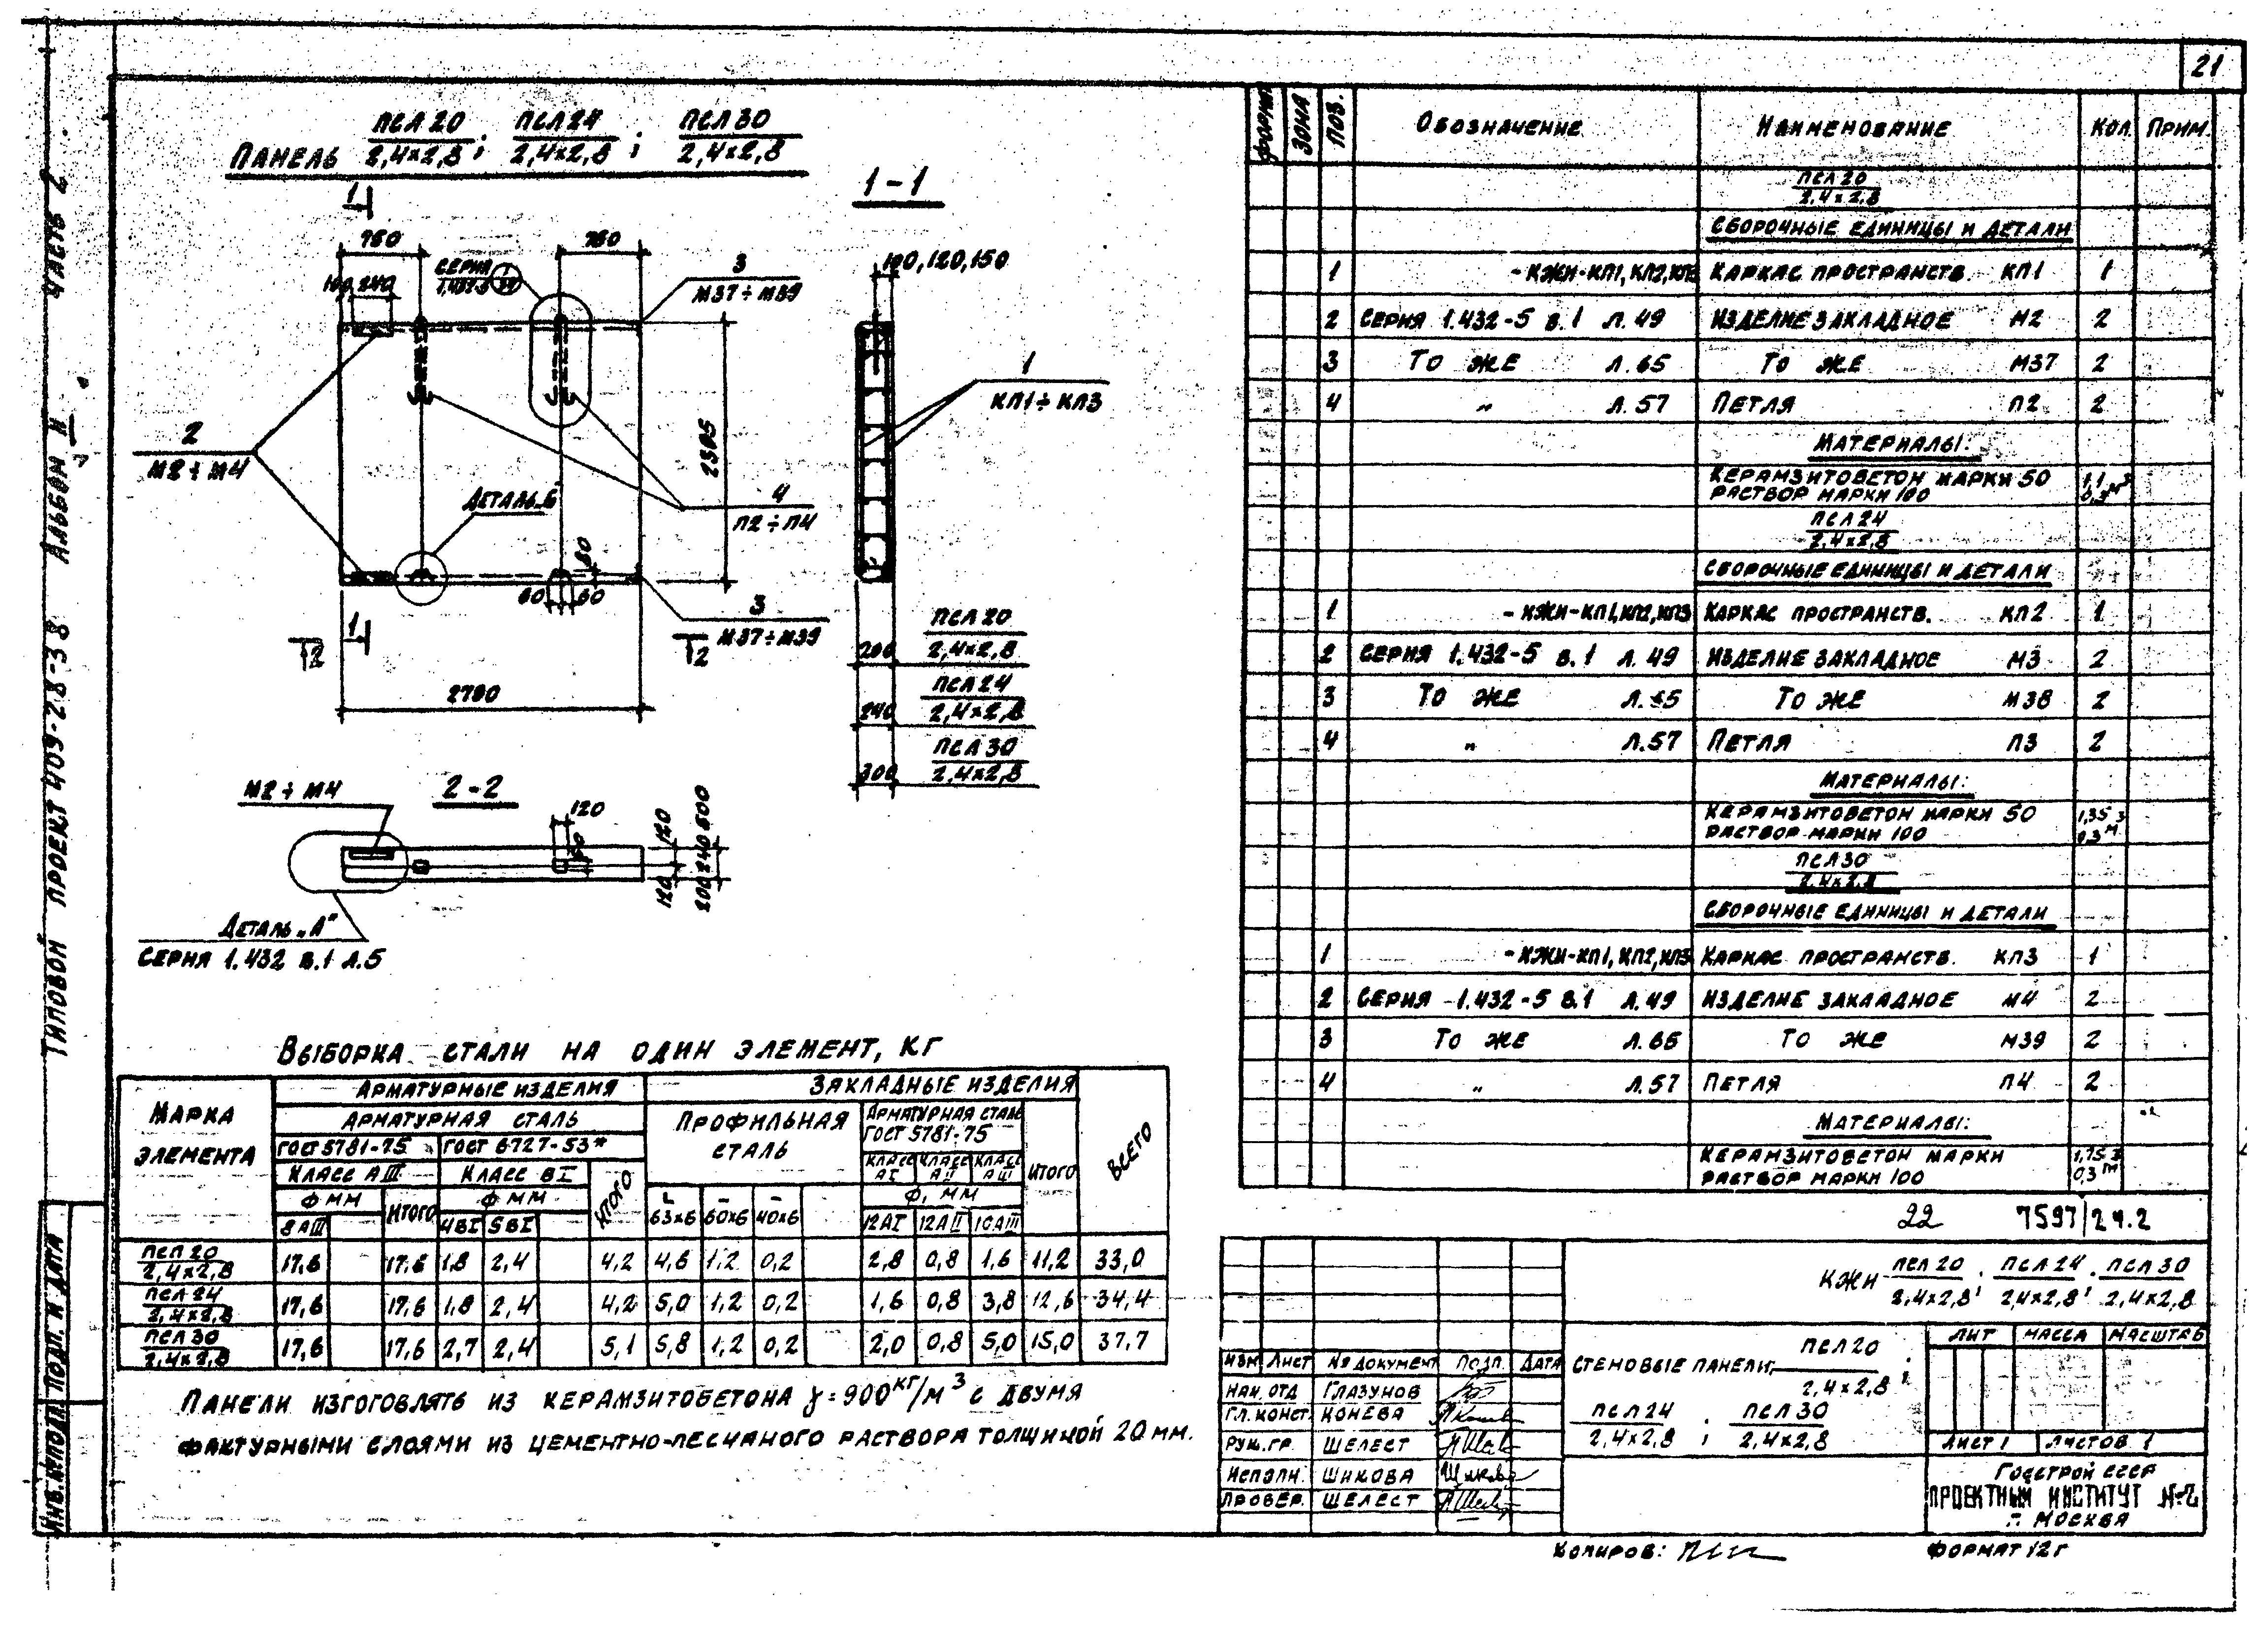 21
ТИПОВОЙ ПРОЕКТ 409-28-38 АЛЬБОМ II ЧАСТЬ 2
ПАНЕЛЬ ПСЛ 20 / 2,4×2,8 ; ПСЛ 24 / 2,4×2,8 ; ПСЛ 30 / 2,4×2,8
1
1-1
750
750
СЕРИЯ
240
3
М37÷М39
100,120,150
2
М2÷М4
2385
1
КП1÷КП3
ДЕТАЛЬ„Б"
4
П2÷П4
80
60 60
3
М37÷М39
1
2
2
2790
200 ПСЛ 20 / 2,4×2,8
240 ПСЛ 24 / 2,4×2,8
300 ПСЛ 30 / 2,4×2,8
М2÷М4
2-2
120
120
120
200 240 600
ДЕТАЛЬ „А"
СЕРИЯ 1.432 В.1 Л.5
ВЫБОРКА СТАЛИ НА ОДИН ЭЛЕМЕНТ, КГ
МАРКА ЭЛЕМЕНТА
АРМАТУРНЫЕ ИЗДЕЛИЯ
ЗАКЛАДНЫЕ ИЗДЕЛИЯ
ВСЕГО
АРМАТУРНАЯ СТАЛЬ
ПРОФИЛЬНАЯ СТАЛЬ
АРМАТУРНАЯ СТАЛЬ ГОСТ 5781-75
ИТОГО
ГОСТ 5781-75 ГОСТ 6727-53*
КЛАСС АIII КЛАСС ВI ИТОГО
КЛАСС АI КЛАСС АII КЛАСС АIII
Ф ММ ИТОГО Ф ММ
Ф, ММ
8АIII 4ВI 5ВI 63×6 60×6 40×6 12АI 12АII 10АIII
ПСЛ 20 / 2,4×2,8 17,6 17,6 1,8 2,4 4,2 4,6 1,2 0,2 2,8 0,8 1,6 11,2 33,0
ПСЛ 24 / 2,4×2,8 17,6 17,6 1,8 2,4 4,2 5,0 1,2 0,2 1,6 0,8 3,8 12,6 34,4
ПСЛ 30 / 2,4×2,8 17,6 17,6 2,7 2,4 5,1 5,8 1,2 0,2 2,0 0,8 5,0 15,0 37,7
ПАНЕЛИ ИЗГОТОВЛЯТЬ ИЗ КЕРАМЗИТОБЕТОНА γ=900 КГ/М³ С ДВУМЯ
ФАКТУРНЫМИ СЛОЯМИ ИЗ ЦЕМЕНТНО-ПЕСЧАНОГО РАСТВОРА ТОЛЩИНОЙ 20 ММ.
ФОРМАТ ЗОНА ПОЗ. ОБОЗНАЧЕНИЕ НАИМЕНОВАНИЕ КОЛ. ПРИМ.
ПСЛ 20 / 2,4×2,8
СБОРОЧНЫЕ ЕДИНИЦЫ И ДЕТАЛИ
1 -КЖИ-КП1, КП2, КП3 КАРКАС ПРОСТРАНСТВ. КП1 1
2 СЕРИЯ 1.432-5 В.1 Л.49 ИЗДЕЛИЕ ЗАКЛАДНОЕ М2 2
3 ТО ЖЕ Л.65 ТО ЖЕ М37 2
4 „ Л.57 ПЕТЛЯ П2 2
МАТЕРИАЛЫ:
КЕРАМЗИТОБЕТОН МАРКИ 50 1,1
РАСТВОР МАРКИ 100 0,3 М³
ПСЛ 24 / 2,4×2,8
СБОРОЧНЫЕ ЕДИНИЦЫ И ДЕТАЛИ
1 -КЖИ-КП1, КП2, КП3 КАРКАС ПРОСТРАНСТВ. КП2 1
2 СЕРИЯ 1.432-5 В.1 Л.49 ИЗДЕЛИЕ ЗАКЛАДНОЕ М3 2
3 ТО ЖЕ Л.65 ТО ЖЕ М38 2
4 „ Л.57 ПЕТЛЯ П3 2
МАТЕРИАЛЫ:
КЕРАМЗИТОБЕТОН МАРКИ 50 1,35
РАСТВОР МАРКИ 100 0,3 М³
ПСЛ 30 / 2,4×2,8
СБОРОЧНЫЕ ЕДИНИЦЫ И ДЕТАЛИ
1 -КЖИ-КП1, КП2, КП3 КАРКАС ПРОСТРАНСТВ. КП3 1
2 СЕРИЯ 1.432-5 В.1 Л.49 ИЗДЕЛИЕ ЗАКЛАДНОЕ М4 2
3 ТО ЖЕ Л.65 ТО ЖЕ М39 2
4 „ Л.57 ПЕТЛЯ П4 2
МАТЕРИАЛЫ:
КЕРАМЗИТОБЕТОН МАРКИ 1,75
РАСТВОР МАРКИ 100 0,3 М³
22 7597/2 ч.2
КЖИ ПСЛ 20 / 2,4×2,8 , ПСЛ 24 / 2,4×2,8 , ПСЛ 30 / 2,4×2,8
ИЗМ ЛИСТ № ДОКУМЕНТ ПОДП. ДАТА
НАЧ. ОТД ГЛАЗУНОВ
ГЛ. КОНСТ. КОНЕВА
РУК. ГР. ШЕЛЕСТ
ИСПОЛН. ШИКОВА
ПРОВЕР. ШЕЛЕСТ
СТЕНОВЫЕ ПАНЕЛИ ПСЛ 20 / 2,4×2,8 ;
ПСЛ 24 / 2,4×2,8 ; ПСЛ 30 / 2,4×2,8
ЛИТ МАССА МАСШТАБ
ЛИСТ 1 ЛИСТОВ 1
ГОССТРОЙ СССР
ПРОЕКТНЫЙ ИНСТИТУТ №2
Г. МОСКВА
КОПИРОВ:
ФОРМАТ 12Г
ИНВ.№ ПОДЛ. ПОДП. И ДАТА